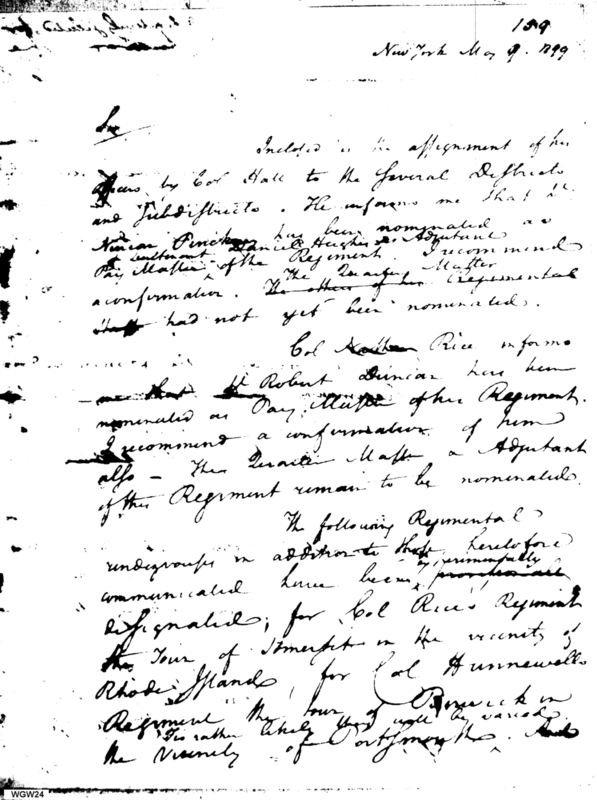 159
New York May 9. 1799
Sir
Inclosed is the assignment of his
officers by Col Hall to the several Districts
and Subdistricts. He informs me that Lt
Ninian Pinckney has been nominated as
Pay Master & Lieutenant Daniel Hughes as Adjutant
of the Regiment. I recommend
a confirmation. The Quarter Master
The others of his Regimental
Staff had not yet been nominated.
Col Nathan Rice informs
me that Lt Robert Duncan has been
nominated as Pay Master of his Regiment.
I recommend a confirmation of him
also — The Quarter Master & Adjutant
of this Regiment remain to be nominated.
The following Regimental
rendezvouses in addition to those heretofore
communicated have been experimentally provisionally
designated; for Col Rice's Regiment
the Town of Somerset in the vicinity of
Rhode Island, for Col Hunnewells
Regiment the town of Berwick in
the vicinity of Portsmouth.
Tis rather likely these will be varied
WGW24